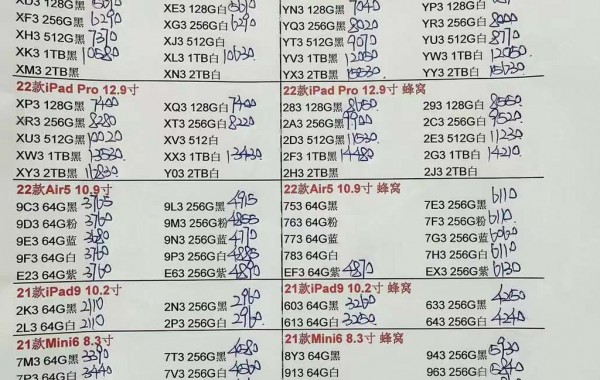 XD3 128G黑 XE3 128G白 YN3 128G黑 7040 YP3 128G白
XF3 256G黑 6290 XG3 256G白 6290 YQ3 256G黑 8020 YR3 256G白 8000
XH3 512G黑 7370 XJ3 512G白 YT3 512G黑 9070 YU3 512G白 8770
XK3 1TB黑 10580 XL3 1TB白 10630 YV3 1TB黑 12050 YW3 1TB白 12050
XM3 2TB黑 XN3 2TB白 YX3 2TB黑 15530 YY3 2TB白 15630
22款iPad Pro 12.9寸 22款iPad Pro 12.9寸 蜂窝
XP3 128G黑 7400 XQ3 128G白 7400 283 128G黑 8650 293 128G白 8550
XR3 256G黑 8280 XT3 256G白 8220 2A3 256G黑 9900 2C3 256G白 9520
XU3 512G黑 10020 XV3 512G白 2D3 512G黑 11530 2E3 512G白 11230
XW3 1TB黑 13530 XX3 1TB白 13420 2F3 1TB黑 14480 2G3 1TB白 14210
XY3 2TB黑 16830 Y03 2TB白 2H3 2TB黑 2J3 2TB白
22款Air5 10.9寸 22款Air5 10.9寸 蜂窝
9C3 64G黑 3765 9L3 256G黑 4915 753 64G黑 7E3 256G黑 6110
9D3 64G粉 3760 9M3 256G粉 4855 763 64G粉 7F3 256G粉 6110
9E3 64G蓝 3680 9N3 256G蓝 4770 773 64G蓝 7G3 256G蓝 6060
9F3 64G白 3760 9P3 256G白 4885 783 64G白 7H3 256G白 6110
E23 64G紫 3760 E63 256G紫 4890 EF3 64G紫 4870 EX3 256G紫 6130
21款iPad9 10.2寸 21款iPad9 10.2寸 蜂窝
2K3 64G黑 2110 2N3 256G黑 2960 603 64G黑 3260 633 256G黑 4250
2L3 64G白 2110 2P3 256G白 2960 613 64G白 3250 643 256G白 4240
21款Mini6 8.3寸 21款Mini6 8.3寸 蜂窝
7M3 64G黑 3390 7T3 256G黑 4580 8Y3 64G黑 943 256G黑 5930
7P3 64G白 3440 7V3 256G白 4560 913 64G白 963 256G白 5840